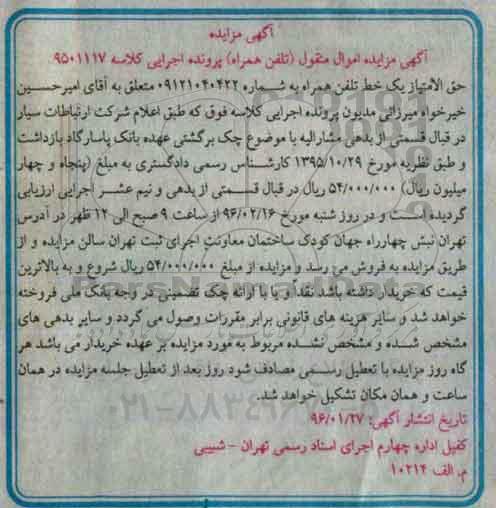 آگهی مزایده
آگهی مزایده اموال منقول (تلفن همراه) پرونده اجرایی کلاسه ۹۵۰۱۱۱۷
حق الامتیاز یک خط تلفن همراه به شماره ۰۹۱۲۱۰۴۰۴۲۲ متعلق به آقای امیرحسین
خیرخواه میرزائی مدیون پرونده اجرایی کلاسه فوق که طبق اعلام شرکت ارتباطات سیار
در قبال قسمتی از بدهی مشارالیه با موضوع چک برگشتی عهده بانک پاسارگاد بازداشت
و طبق نظریه مورخ ۱۳۹۵/۱۰/۲۹ کارشناس رسمی دادگستری به مبلغ (پنجاه و چهار
میلیون ریال) ۵۴/۰۰۰/۰۰۰ ریال در قبال قسمتی از بدهی و نیم عشر اجرایی ارزیابی
گردیده است و در روز شنبه مورخ ۹۶/۰۲/۱۶ از ساعت ۹ صبح الی ۱۲ ظهر در آدرس
تهران نبش چهارراه جهان کودک ساختمان معاونت اجرای ثبت تهران سالن مزایده و از
طریق مزایده به فروش می رسد و مزایده از مبلغ ۵۴/۰۰۰/۰۰۰ ریال شروع و به بالاترین
قیمت که خریدار داشته باشد نقداً و یا با ارائه چک تضمینی در وجه بانک ملی فروخته
خواهد شد و سایر هزینه های قانونی برابر مقررات وصول می گردد و سایر بدهی های
مشخص شده و مشخص نشده مربوط به مورد مزایده بر عهده خریدار می باشد هر
گاه روز مزایده با تعطیل رسمی مصادف شود روز بعد از تعطیل جلسه مزایده در همان
ساعت و همان مکان تشکیل خواهد شد.
تاریخ انتشار آگهی: ۹۶/۰۱/۲۷
کفیل اداره چهارم اجرای اسناد رسمی تهران - شبیبی
م. الف ۱۰۲۱۴